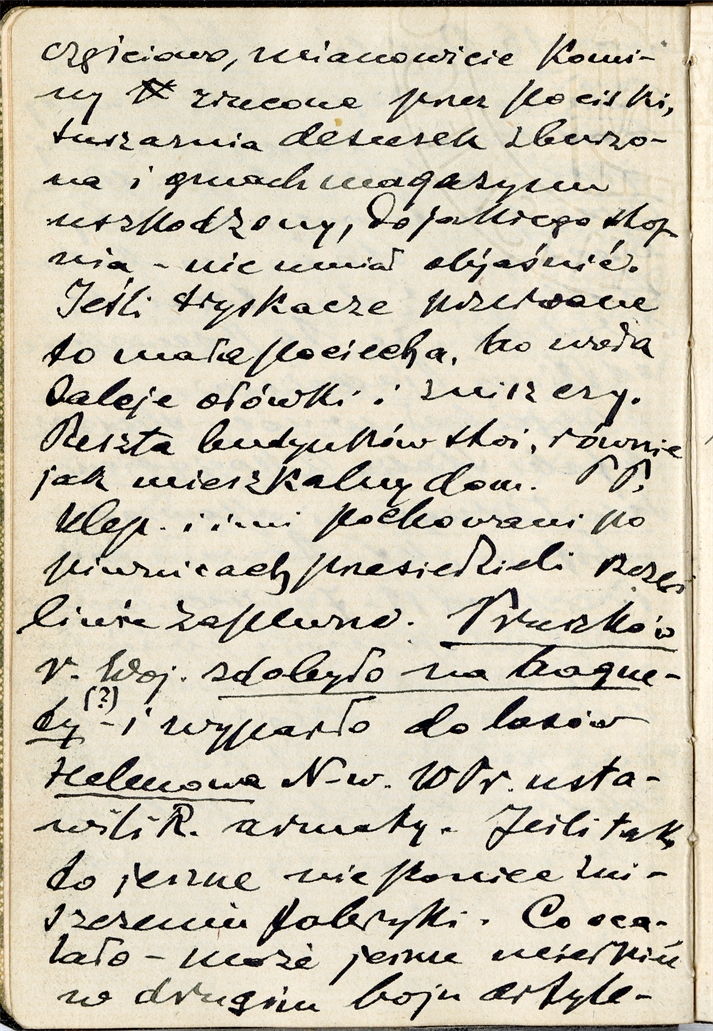 częściowo, mianowicie komi-
ny zrzucone przez pociski,
suszarnia deseczek zburzo-
na i gmach magazynu
uszkodzony, do jakiego stop-
nia - nie umiał objaśnić.
Jeśli tryskacze przerwane
to mała pociecha, bo woda
zaleje ołówki i zniszczy.
Reszta budynków stoi, równie
jak mieszkalny dom. PP.
Klep. i inni pochowani po
piwnicach przesiedzieli
zapewne. Pruszków
r. Woj. zdobyło na bagne-
ty (?) - i wyparło do lasów
Helenowa N-w. W Pr. usta-
wili R. armaty. Jeśli tak
to jeszcze nie koniec zni-
szczeniu fabryki. Co oca-
lało - może jeszcze
w drugim boju artyle-